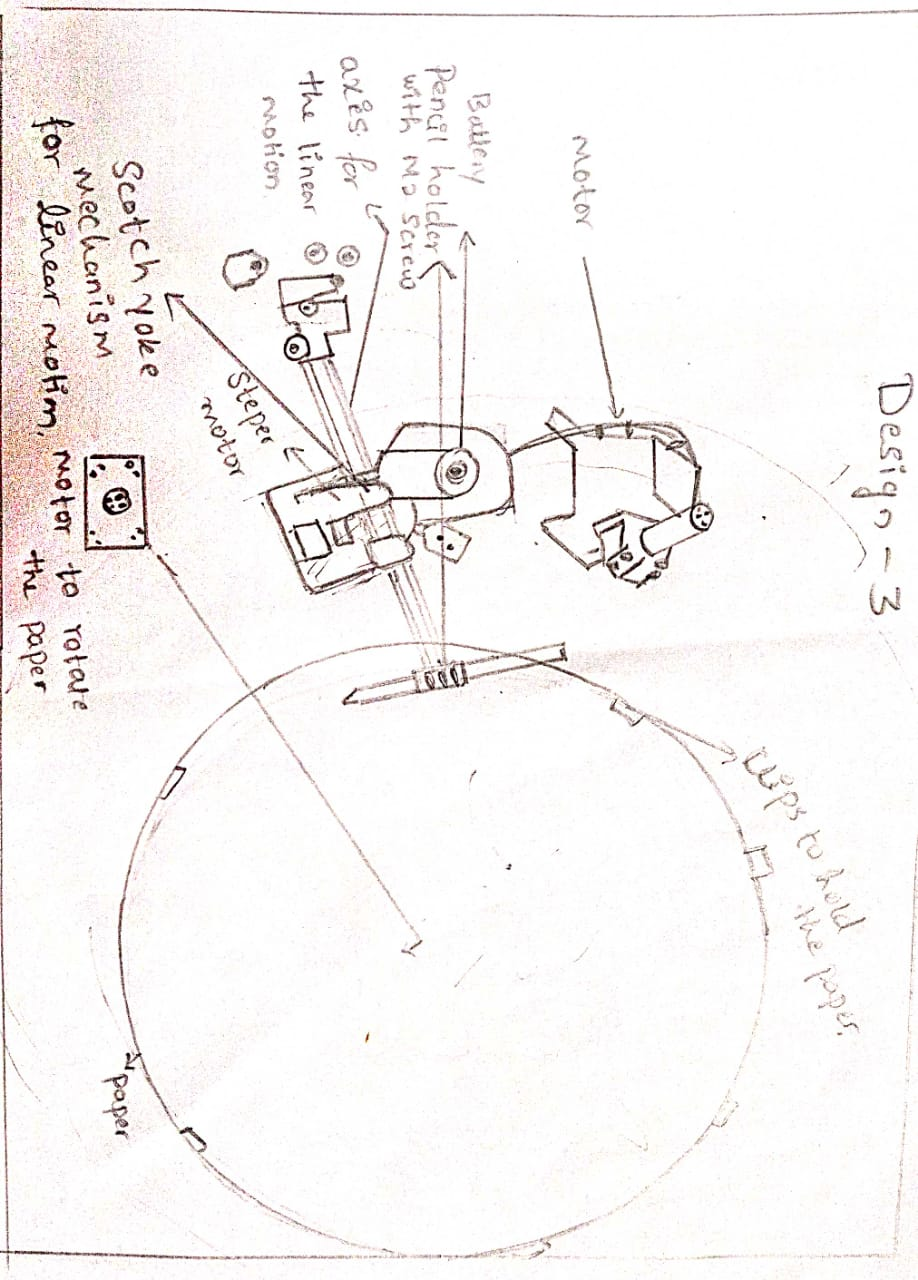 Design-3
Motor
Battery
Pencil holder
with M2 screw
axis for
the linear
motion
Steper
motor
Scotch yoke
mechanism
for linear motion, motor to rotate
the paper
Clips to hold
the paper
paper